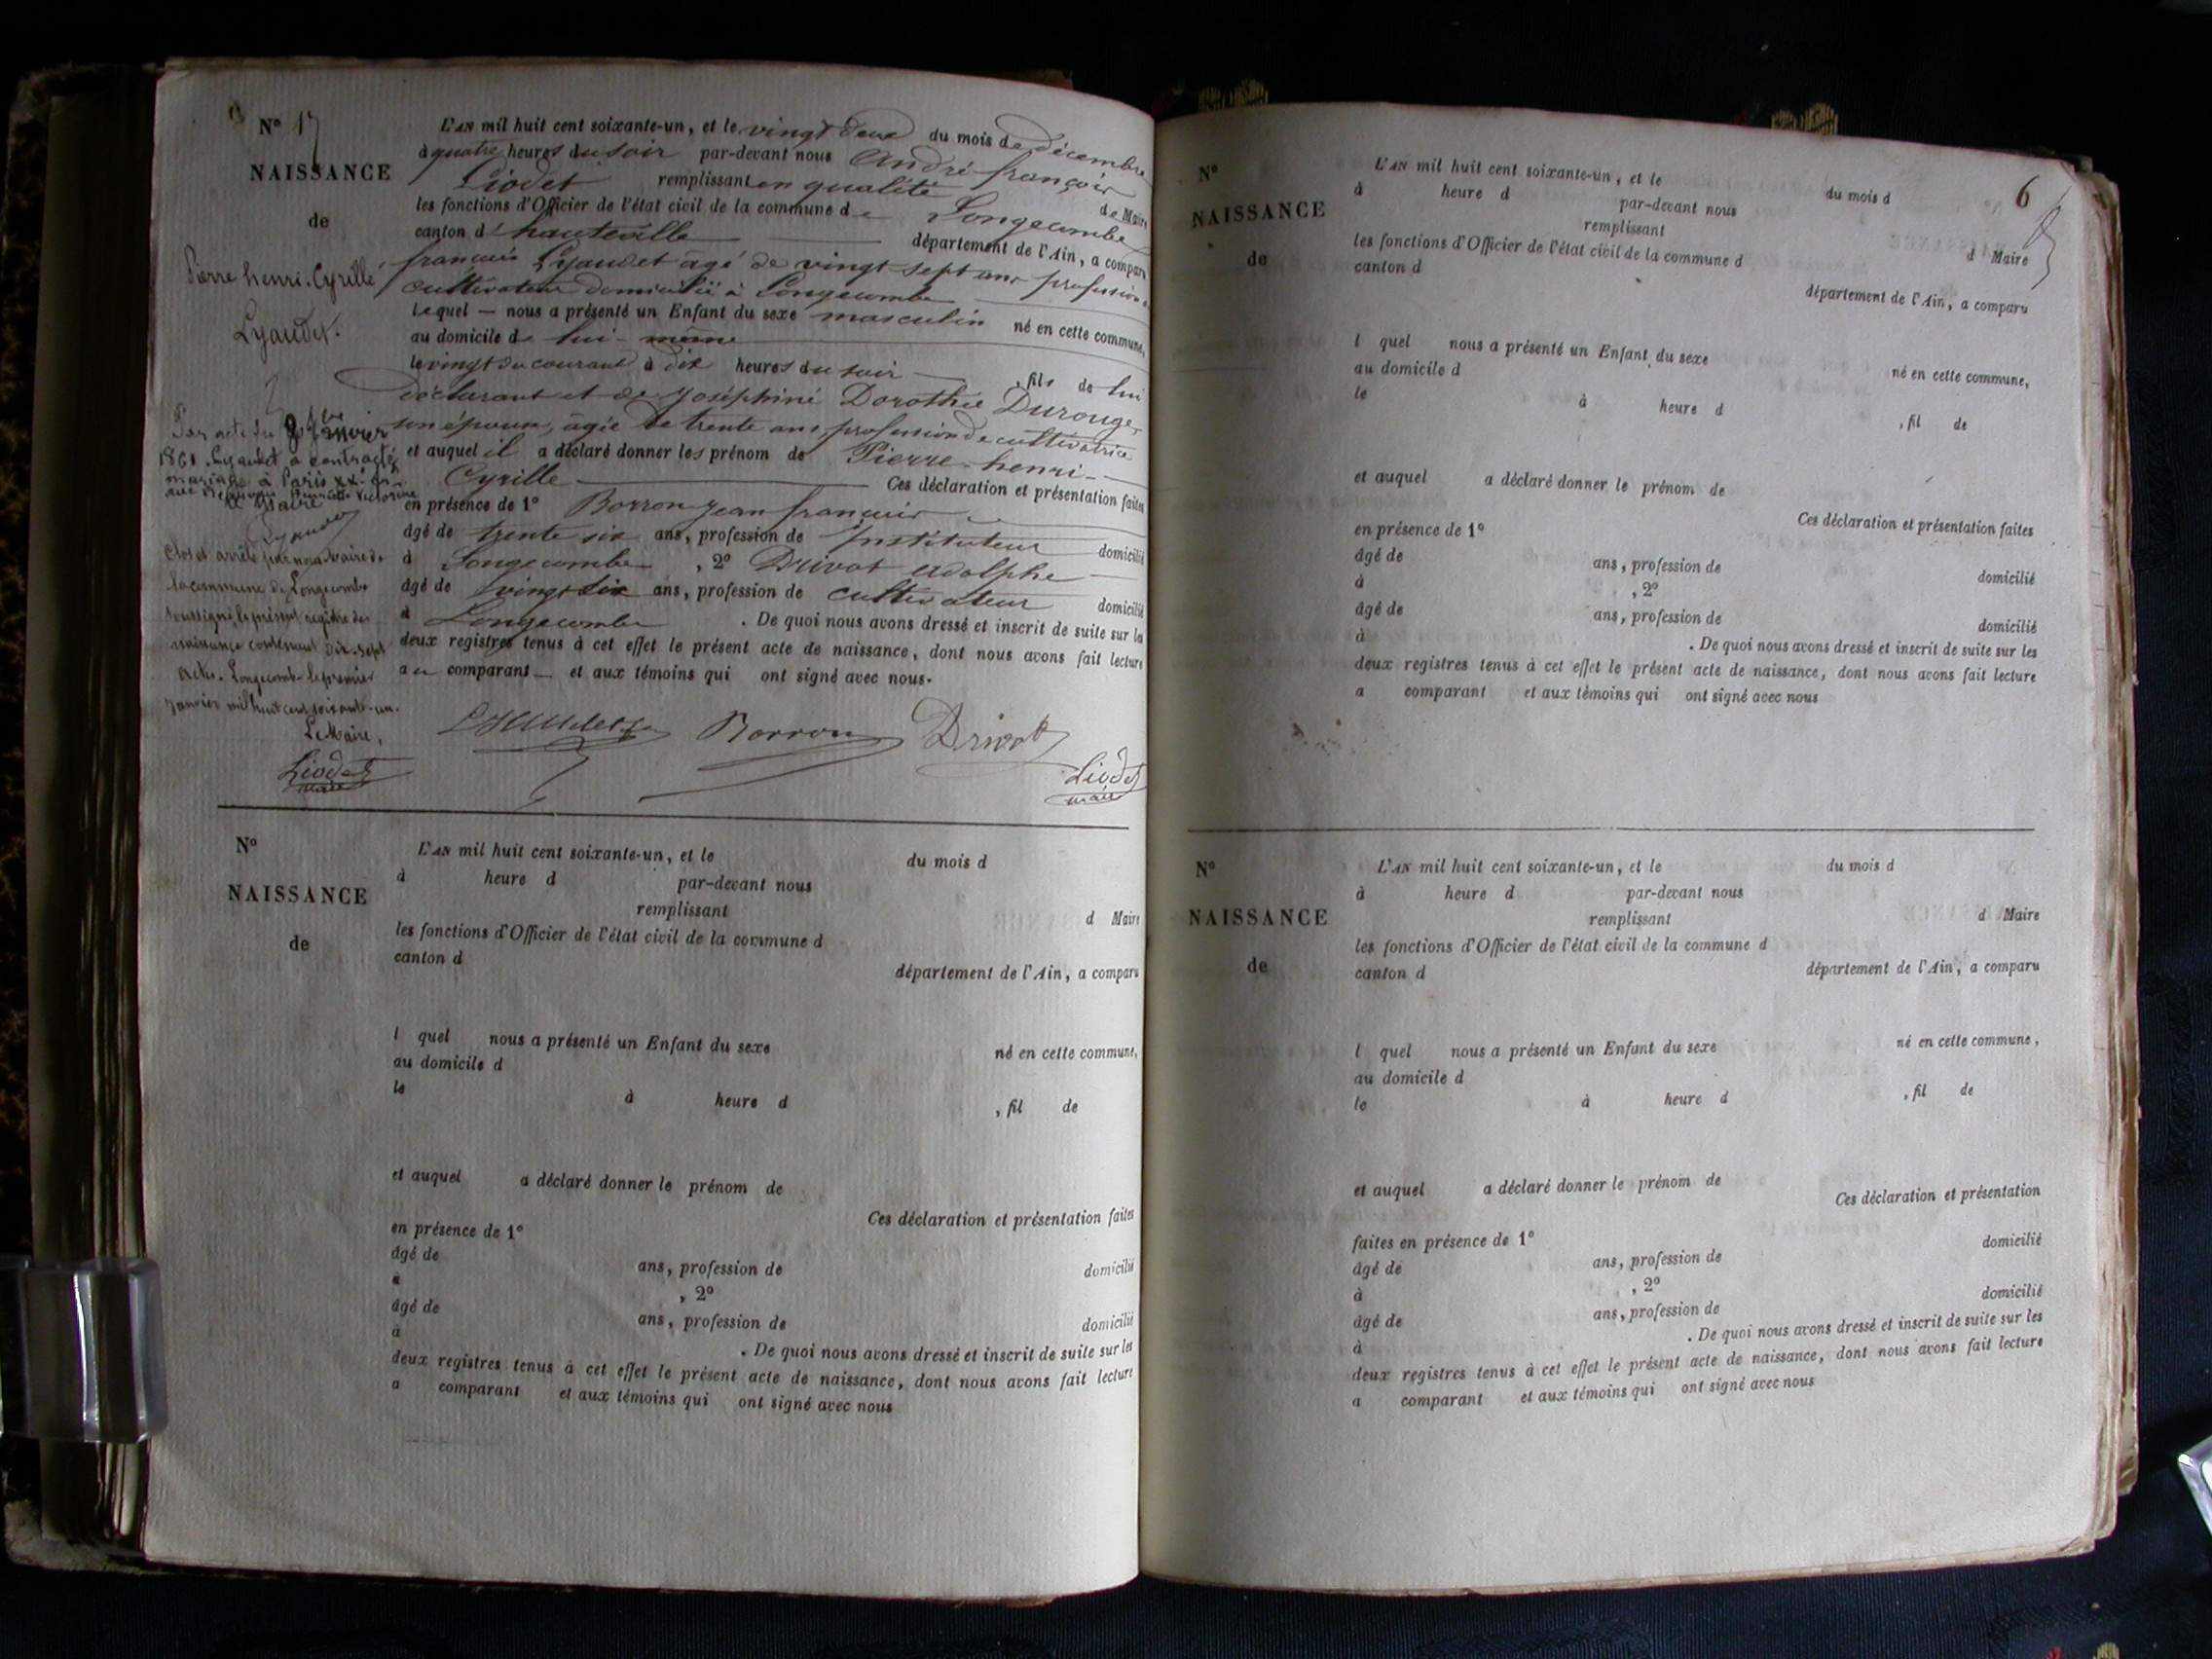 N° 17
NAISSANCE
de
Pierre henri Cyrille
Lyaudet.
L'AN mil huit cent soixante-un, et le vingt deux du mois de décembre
à quatre heures du soir par-devant nous André françois
Liodet remplissant en qualité de Maire
les fonctions d'Officier de l'état civil de la commune de Longecombe
canton d'hauteville département de l'Ain, a comparu
françois Lyaudet agé de vingt sept ans profession
cultivateur domicilié à Longecombe
Lequel nous a présenté un Enfant du sexe masculin né en cette commune,
au domicile de lui-même
le vingt du courant à dix heures du soir, fils de lui
déclarant et de Joséphine Dorothée Durouge
son épouse, agée de trente ans, profession de cultivatrice
et auquel il a déclaré donner les prénom de Pierre-henri-
Cyrille Ces déclaration et présentation faites
en présence de 1° Borron Jean françois
âgé de trente six ans, profession de Instituteur domicilié
à Longecombe, 2° Drivot adolphe
âgé de vingt six ans, profession de cultivateur domicilié
à Longecombe. De quoi nous avons dressé et inscrit de suite sur les
deux registres tenus à cet effet le présent acte de naissance, dont nous avons fait lecture
au comparant et aux témoins qui ont signé avec nous.
Par acte du janvier
Lyaudet a contracté
mariage à Paris
Le Maire
Clos et arrêté par nous Maire de
la commune de Longecombe
soussigné le présent registre de
naissance contenant Dix-sept
actes. Longecombe le premier
janvier mil huit cent soixante-un.
Le Maire,
Liodet
maire
Lyaudet Borron Drivot
Liodet
maire
N°
NAISSANCE
de
L'AN mil huit cent soixante-un, et le du mois d
à heure d par-devant nous
remplissant d Maire
les fonctions d'Officier de l'état civil de la commune d
canton d département de l'Ain, a comparu
l quel nous a présenté un Enfant du sexe né en cette commune,
au domicile d
le à heure d , fil de
et auquel a déclaré donner le prénom de
Ces déclaration et présentation faites
en présence de 1°
âgé de ans, profession de domicilié
à , 2°
âgé de ans, profession de domicilié
à . De quoi nous avons dressé et inscrit de suite sur les
deux registres tenus à cet effet le présent acte de naissance, dont nous avons fait lecture
a comparant et aux témoins qui ont signé avec nous
6
N°
NAISSANCE
de
L'AN mil huit cent soixante-un, et le du mois d
à heure d par-devant nous
remplissant d Maire
les fonctions d'Officier de l'état civil de la commune d
canton d département de l'Ain, a comparu
l quel nous a présenté un Enfant du sexe né en cette commune,
au domicile d
le à heure d , fil de
et auquel a déclaré donner le prénom de
Ces déclaration et présentation faites
en présence de 1°
âgé de ans, profession de domicilié
à , 2°
âgé de ans, profession de domicilié
à . De quoi nous avons dressé et inscrit de suite sur les
deux registres tenus à cet effet le présent acte de naissance, dont nous avons fait lecture
a comparant et aux témoins qui ont signé avec nous
N°
NAISSANCE
de
L'AN mil huit cent soixante-un, et le du mois d
à heure d par-devant nous
remplissant d Maire
les fonctions d'Officier de l'état civil de la commune d
canton d département de l'Ain, a comparu
l quel nous a présenté un Enfant du sexe né en cette commune,
au domicile d
le à heure d , fil de
et auquel a déclaré donner le prénom de
Ces déclaration et présentation
faites en présence de 1° domicilié
âgé de ans, profession de
à , 2° domicilié
âgé de ans, profession de
à . De quoi nous avons dressé et inscrit de suite sur les
deux registres tenus à cet effet le présent acte de naissance, dont nous avons fait lecture
a comparant et aux témoins qui ont signé avec nous